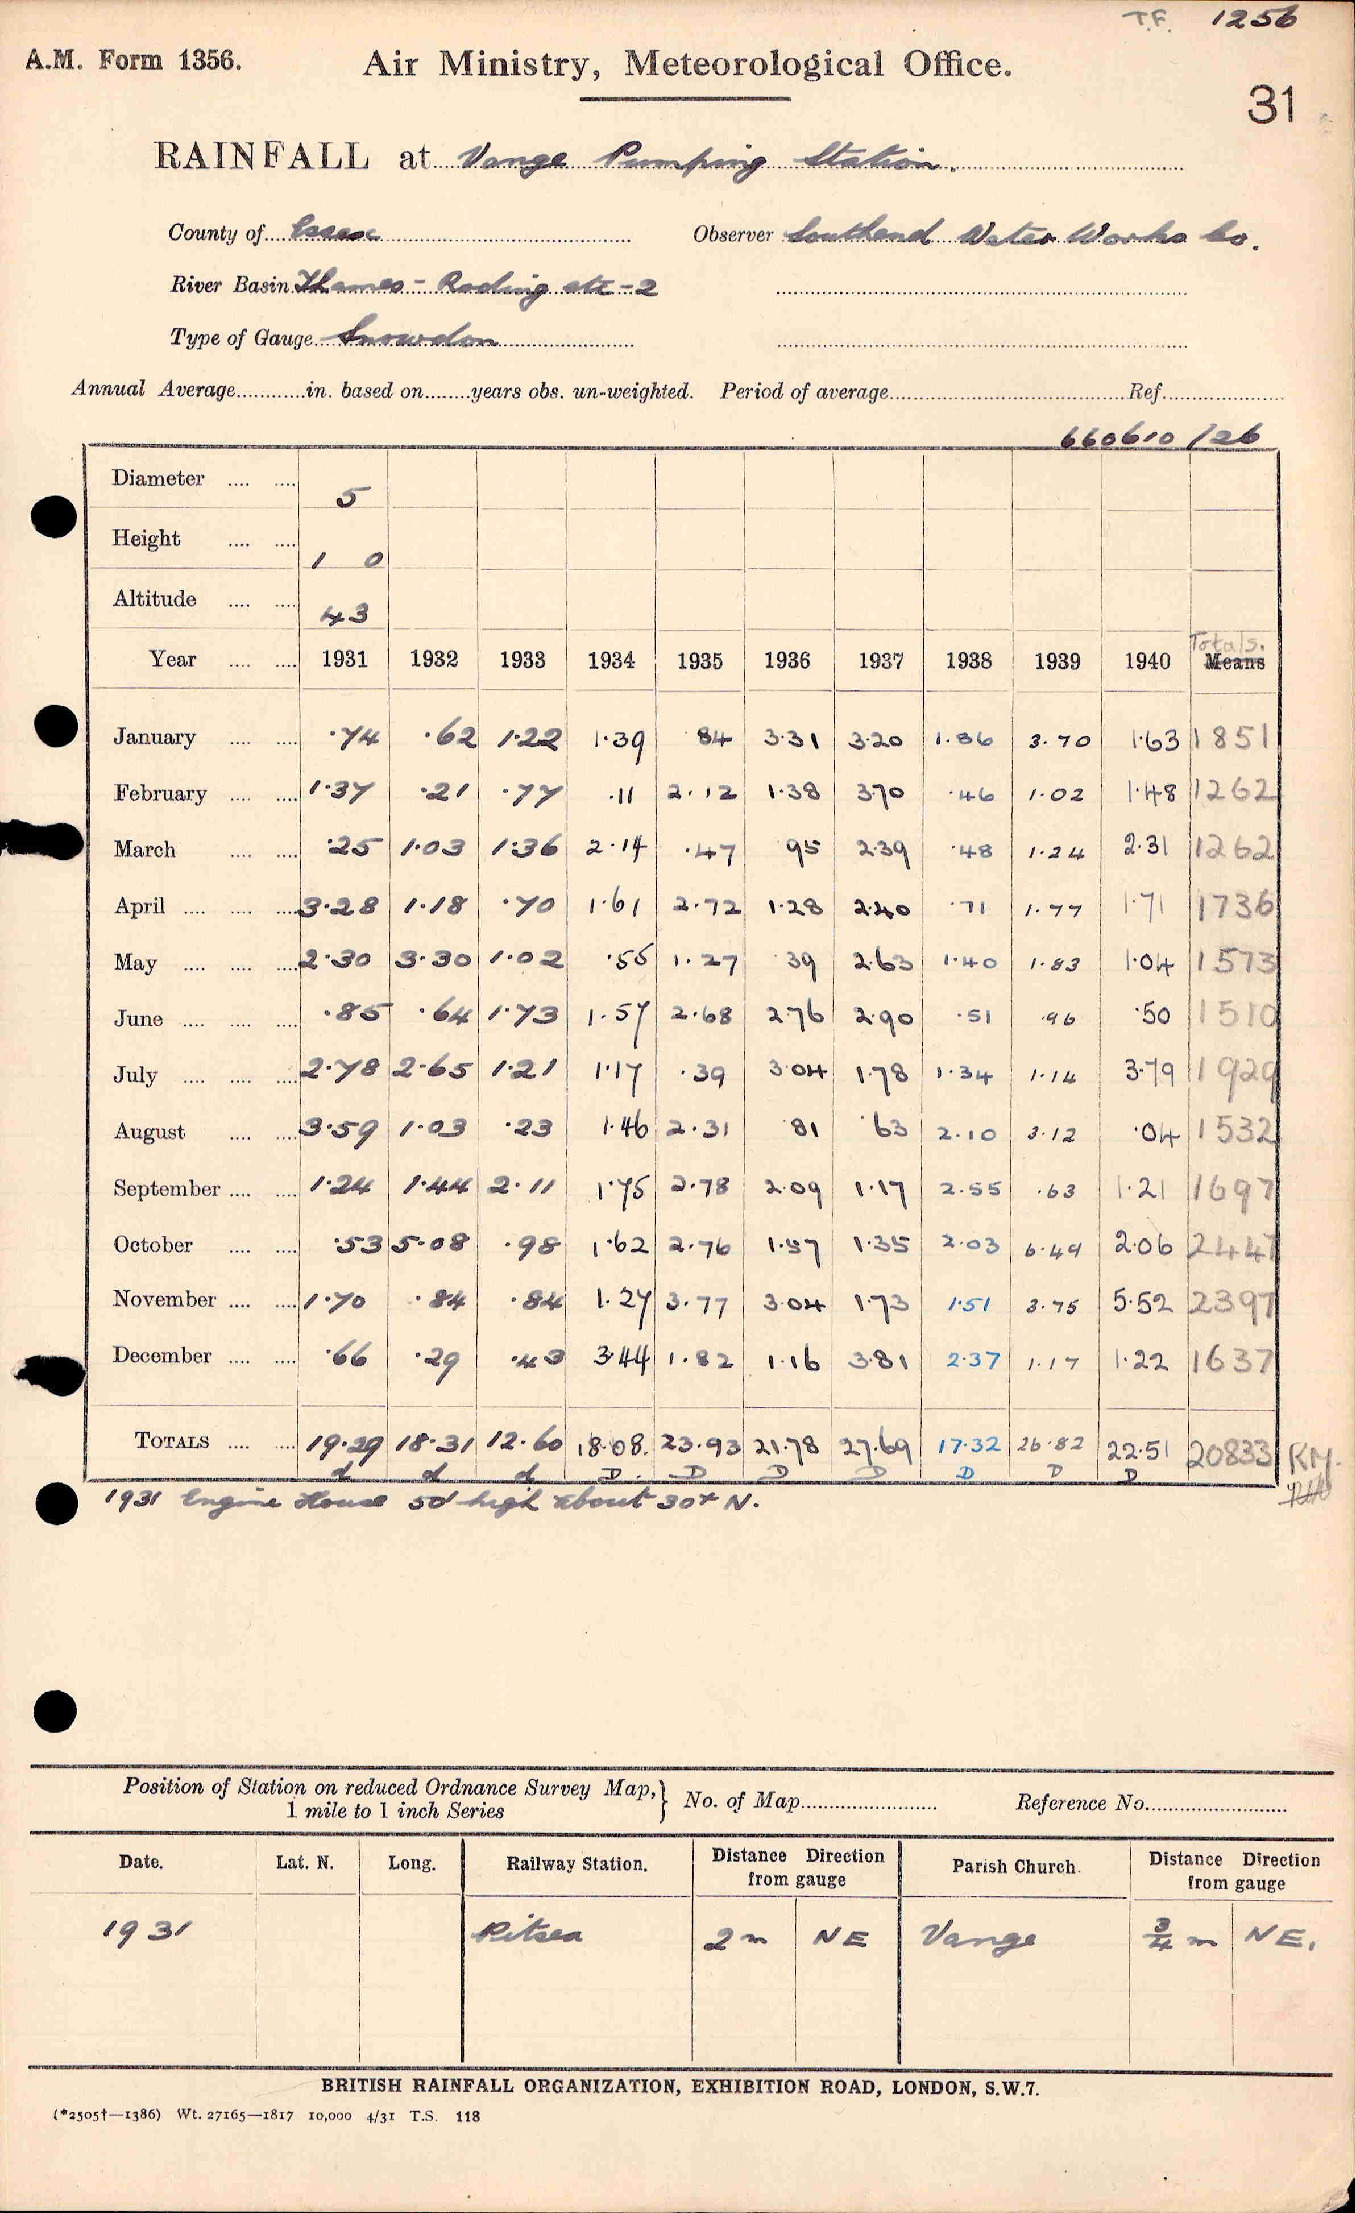 T.F. 1256
A.M. Form 1356. Air Ministry, Meteorological Office.
31
RAINFALL at Vange Pumping Station.
County of Essex Observer Southend Water Works Co.
River Basin Thames - Roding etc - 2
Type of Gauge Snowdon
Annual Average............in. based on........years obs. un-weighted. Period of average........Ref........
660610/26
Diameter .... .... 5
Height .... .... 1 0
Altitude .... .... 43
Totals.
Year .... .... 1931 1932 1933 1934 1935 1936 1937 1938 1939 1940 Means
January .... .... ·74 ·62 1·22 1·39 84 3·31 3·20 1·86 3·70 1·63 1851
February .... .... 1·37 ·21 ·77 ·11 2·12 1·38 370 ·46 1·02 1·48 1262
March .... .... ·25 1·03 1·36 2·14 ·47 95 2·39 ·48 1·24 2·31 1262
April .... .... .... 3·28 1·18 ·70 1·61 2·72 1·28 2·40 ·71 1·77 1·71 1736
May .... .... .... 2·30 3·30 1·02 ·55 1·27 39 2·63 1·40 1·83 1·04 1573
June .... .... .... ·85 ·64 1·73 1·57 2·68 276 2·90 ·51 ·96 ·50 1510
July .... .... .... 2·78 2·65 1·21 1·17 ·39 3·04 1·78 1·34 1·14 3·79 1929
August .... .... 3·59 1·03 ·23 1·46 2·31 81 ·63 2·10 3·12 ·04 1532
September .... .... 1·24 1·44 2·11 1·75 2·78 2·09 1·17 2·55 ·63 1·21 1697
October .... .... ·53 5·08 ·98 1·62 2·76 1·57 1·35 2·03 6·49 2·06 2447
November .... .... 1·70 ·84 ·84 1·27 3·77 3·04 1·73 1·51 3·75 5·52 2397
December .... .... ·66 ·29 ·43 3·44 1·82 1·16 3·81 2·37 1·17 1·22 1637
TOTALS .... .... 19·29 18·31 12·60 18·08. 23·93 21·78 27·69 17·32 26·82 22·51 20833 RM.
d d d D. D D D D D D
1931 Engine House 50' high about 30x N.
Position of Station on reduced Ordnance Survey Map, } No. of Map........ Reference No........
1 mile to 1 inch Series
Date. Lat. N. Long. Railway Station. Distance Direction from gauge Parish Church. Distance Direction from gauge
1931 Pitsea 2 m NE Vange 3/4 m NE.
BRITISH RAINFALL ORGANIZATION, EXHIBITION ROAD, LONDON, S.W.7.
(*2505†—1386) Wt. 27165—1817 10,000 4/31 T.S. 118